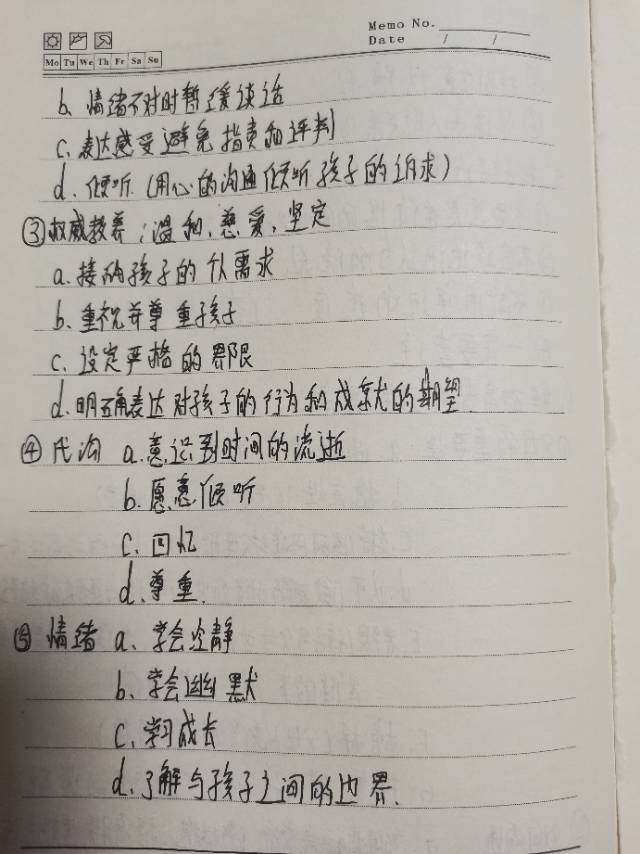 Memo No.
Date / /
Mo Tu We Th Fr Sa Su
b. 情绪不对时暂缓谈话
c. 表达感受避免指责和评判
d. 倾听(用心的沟通倾听孩子的诉求)
③权威教养:温和、慈爱、坚定
a. 接纳孩子的 需求
b. 重视并尊重孩子
c. 设定严格的界限
d. 明确表达对孩子的行为和成就的期望.
④代沟 a. 意识到时间的流逝
b. 愿意倾听
c. 回忆
d. 尊重.
⑤情绪 a. 学会安静
b. 学会幽默
c. 学习成长
d. 了解与孩子之间的边界.